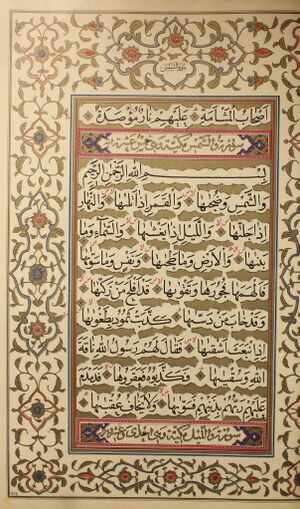 اصحاب المشأمة عليهم نار مؤصدة
سورة الشمس مكية وهی خمس عشر اية
بسم الله الرحمن الرحيم
والشمس وضحيها والقمر اذا تليها والنهار
اذا جليها والليل اذا يغشيها والسماء وما
بنيها والارض وما طحيها ونفس وما سويها
فالهمها فجورها وتقويها قد افلح من زكيها
وقد خاب من دسيها كذبت ثمود بطغويها
اذ انبعث اشقيها فقال لهم رسول الله ناقة
الله وسقيها فكذبوه فعقروها فدمدم
عليهم ربهم بذنبهم فسويها ولا يخاف عقبيها
سورة الليل مكية وهی احدی وعشرون